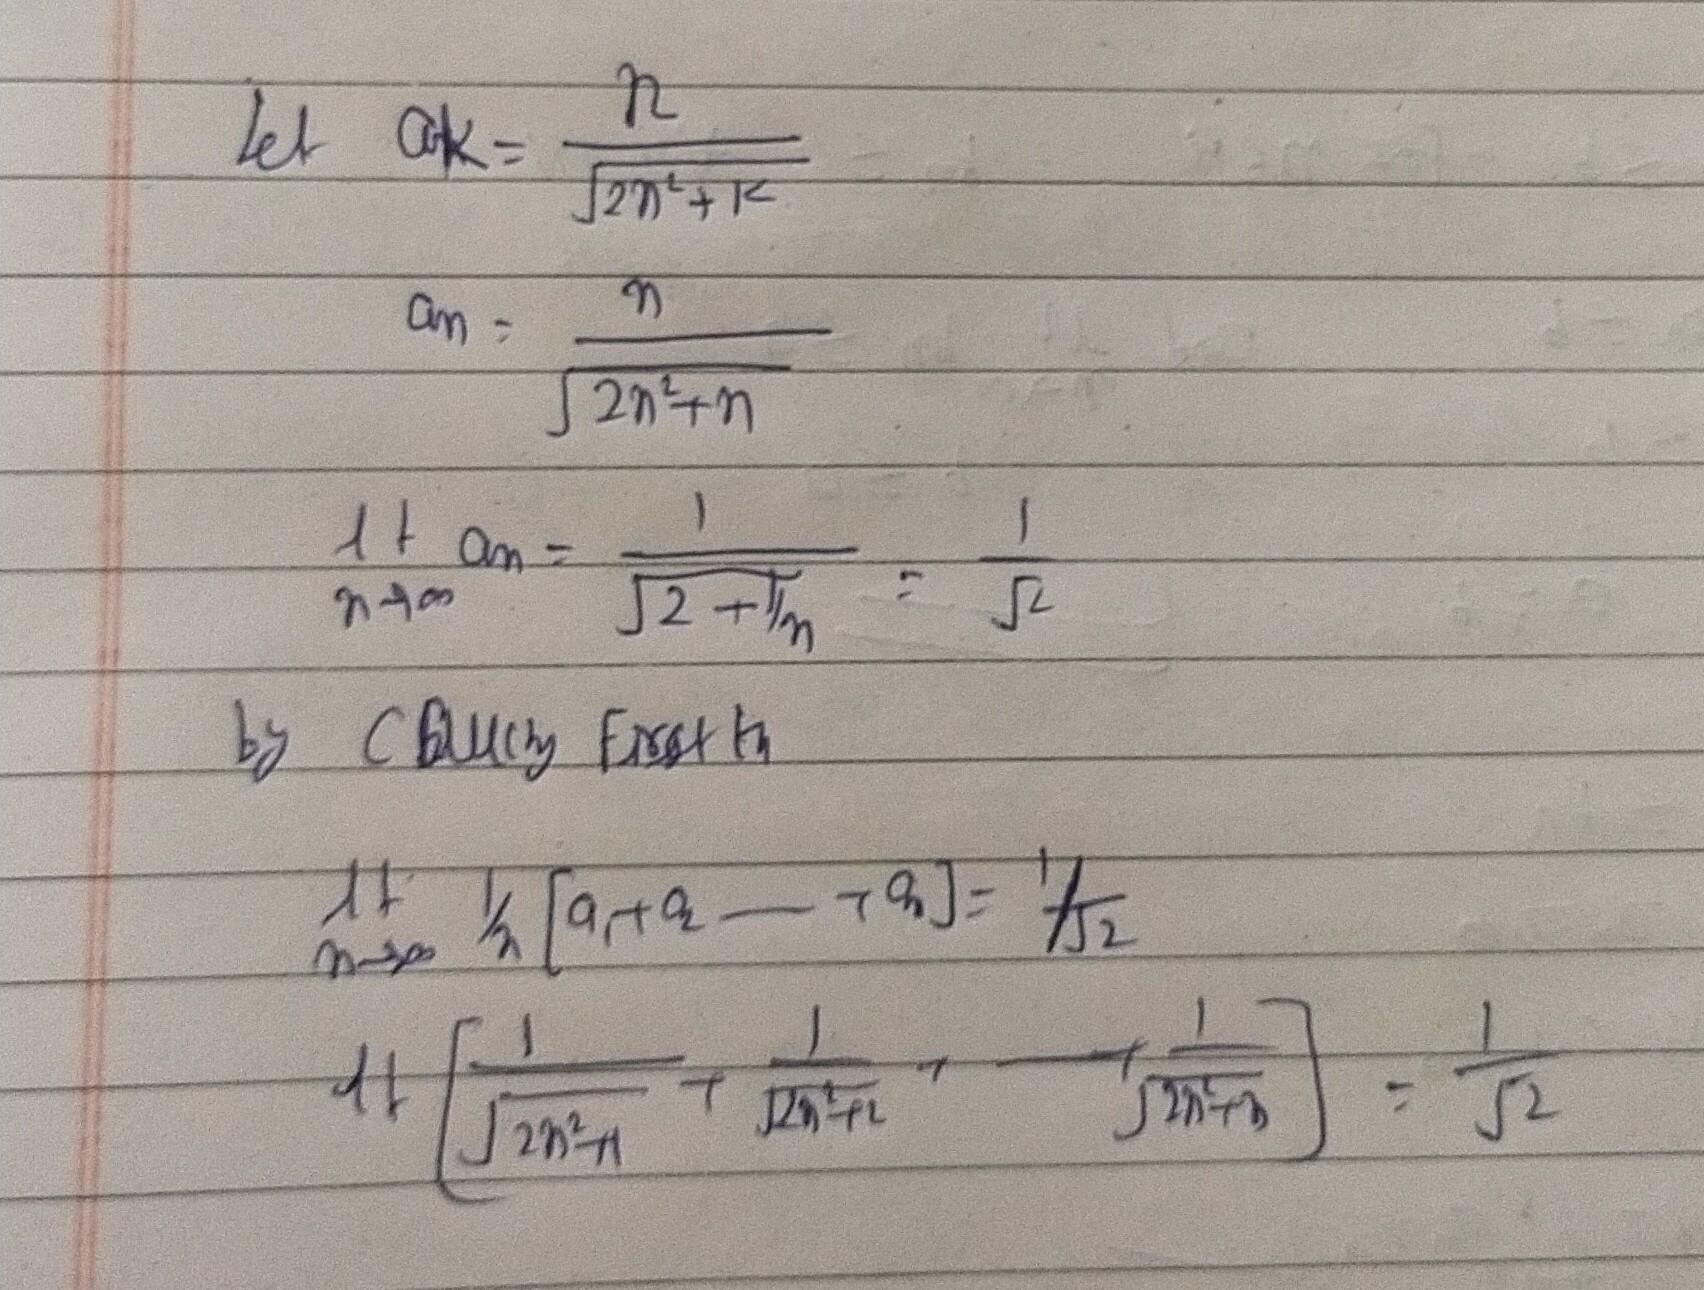 Let ak = n / √(2n² + k)
an = n / √(2n² + n)
lt n→∞ an = 1 / √(2 + 1/n) = 1/√2
by First th
lt n→∞ 1/n [a₁ + a₂ — + an] = 1/√2
lt [1/√(2n²+1) + 1/√(2n²+2) + — + 1/√(2n²+n)] = 1/√2